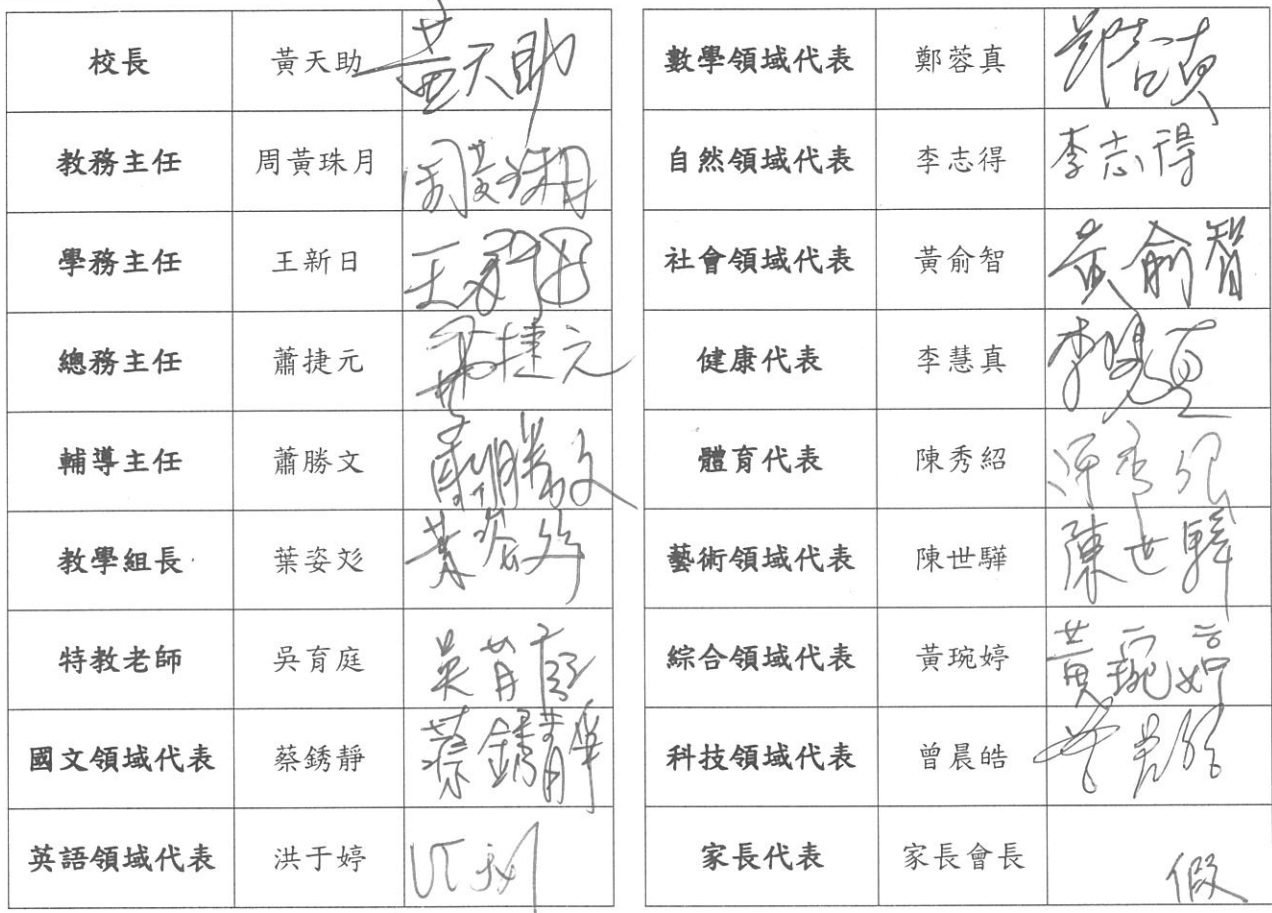 校長 黃天助 黃天助
教務主任 周黃珠月 周黃珠月
學務主任 王新日 王新日
總務主任 蕭捷元 蕭捷元
輔導主任 蕭勝文 蕭勝文
教學組長 葉姿彣 葉姿彣
特教老師 吳育庭 吳育庭
國文領域代表 蔡銹靜 蔡銹靜
英語領域代表 洪于婷
數學領域代表 鄭蓉真 鄭蓉真
自然領域代表 李志得 李志得
社會領域代表 黃俞智 黃俞智
健康代表 李慧真 李慧真
體育代表 陳秀紹
藝術領域代表 陳世驊 陳世驊
綜合領域代表 黃琬婷 黃琬婷
科技領域代表 曾晨皓
家長代表 家長會長 假